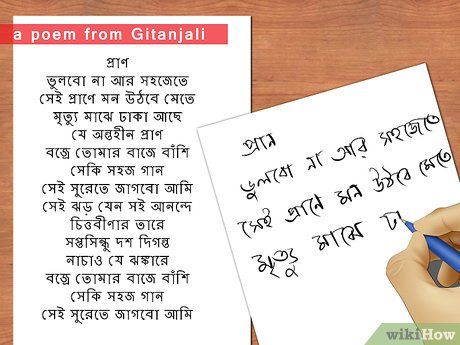 a poem from Gitanjali
প্রাণ
ভুলবো না আর সহজেতে
সেই প্রাণে মন উঠবে মেতে
মৃত্যু মাঝে ঢাকা আছে
যে অন্তহীন প্রাণ
বজ্রে তোমার বাজে বাঁশি
সেকি সহজ গান
সেই সুরেতে জাগবো আমি
সেই ঝড় যেন সই আনন্দে
চিত্তবীণার তারে
সপ্তসিন্ধু দশ দিগন্ত
নাচাও যে ঝঙ্কারে
বজ্রে তোমার বাজে বাঁশি
সেকি সহজ গান
সেই সুরেতে জাগবো আমি
প্রান
ভুলবো না আর সহজেতে
সেই প্রানে মন উঠবে মেতে
মৃত্যু মাঝে ঢা
wikiHow